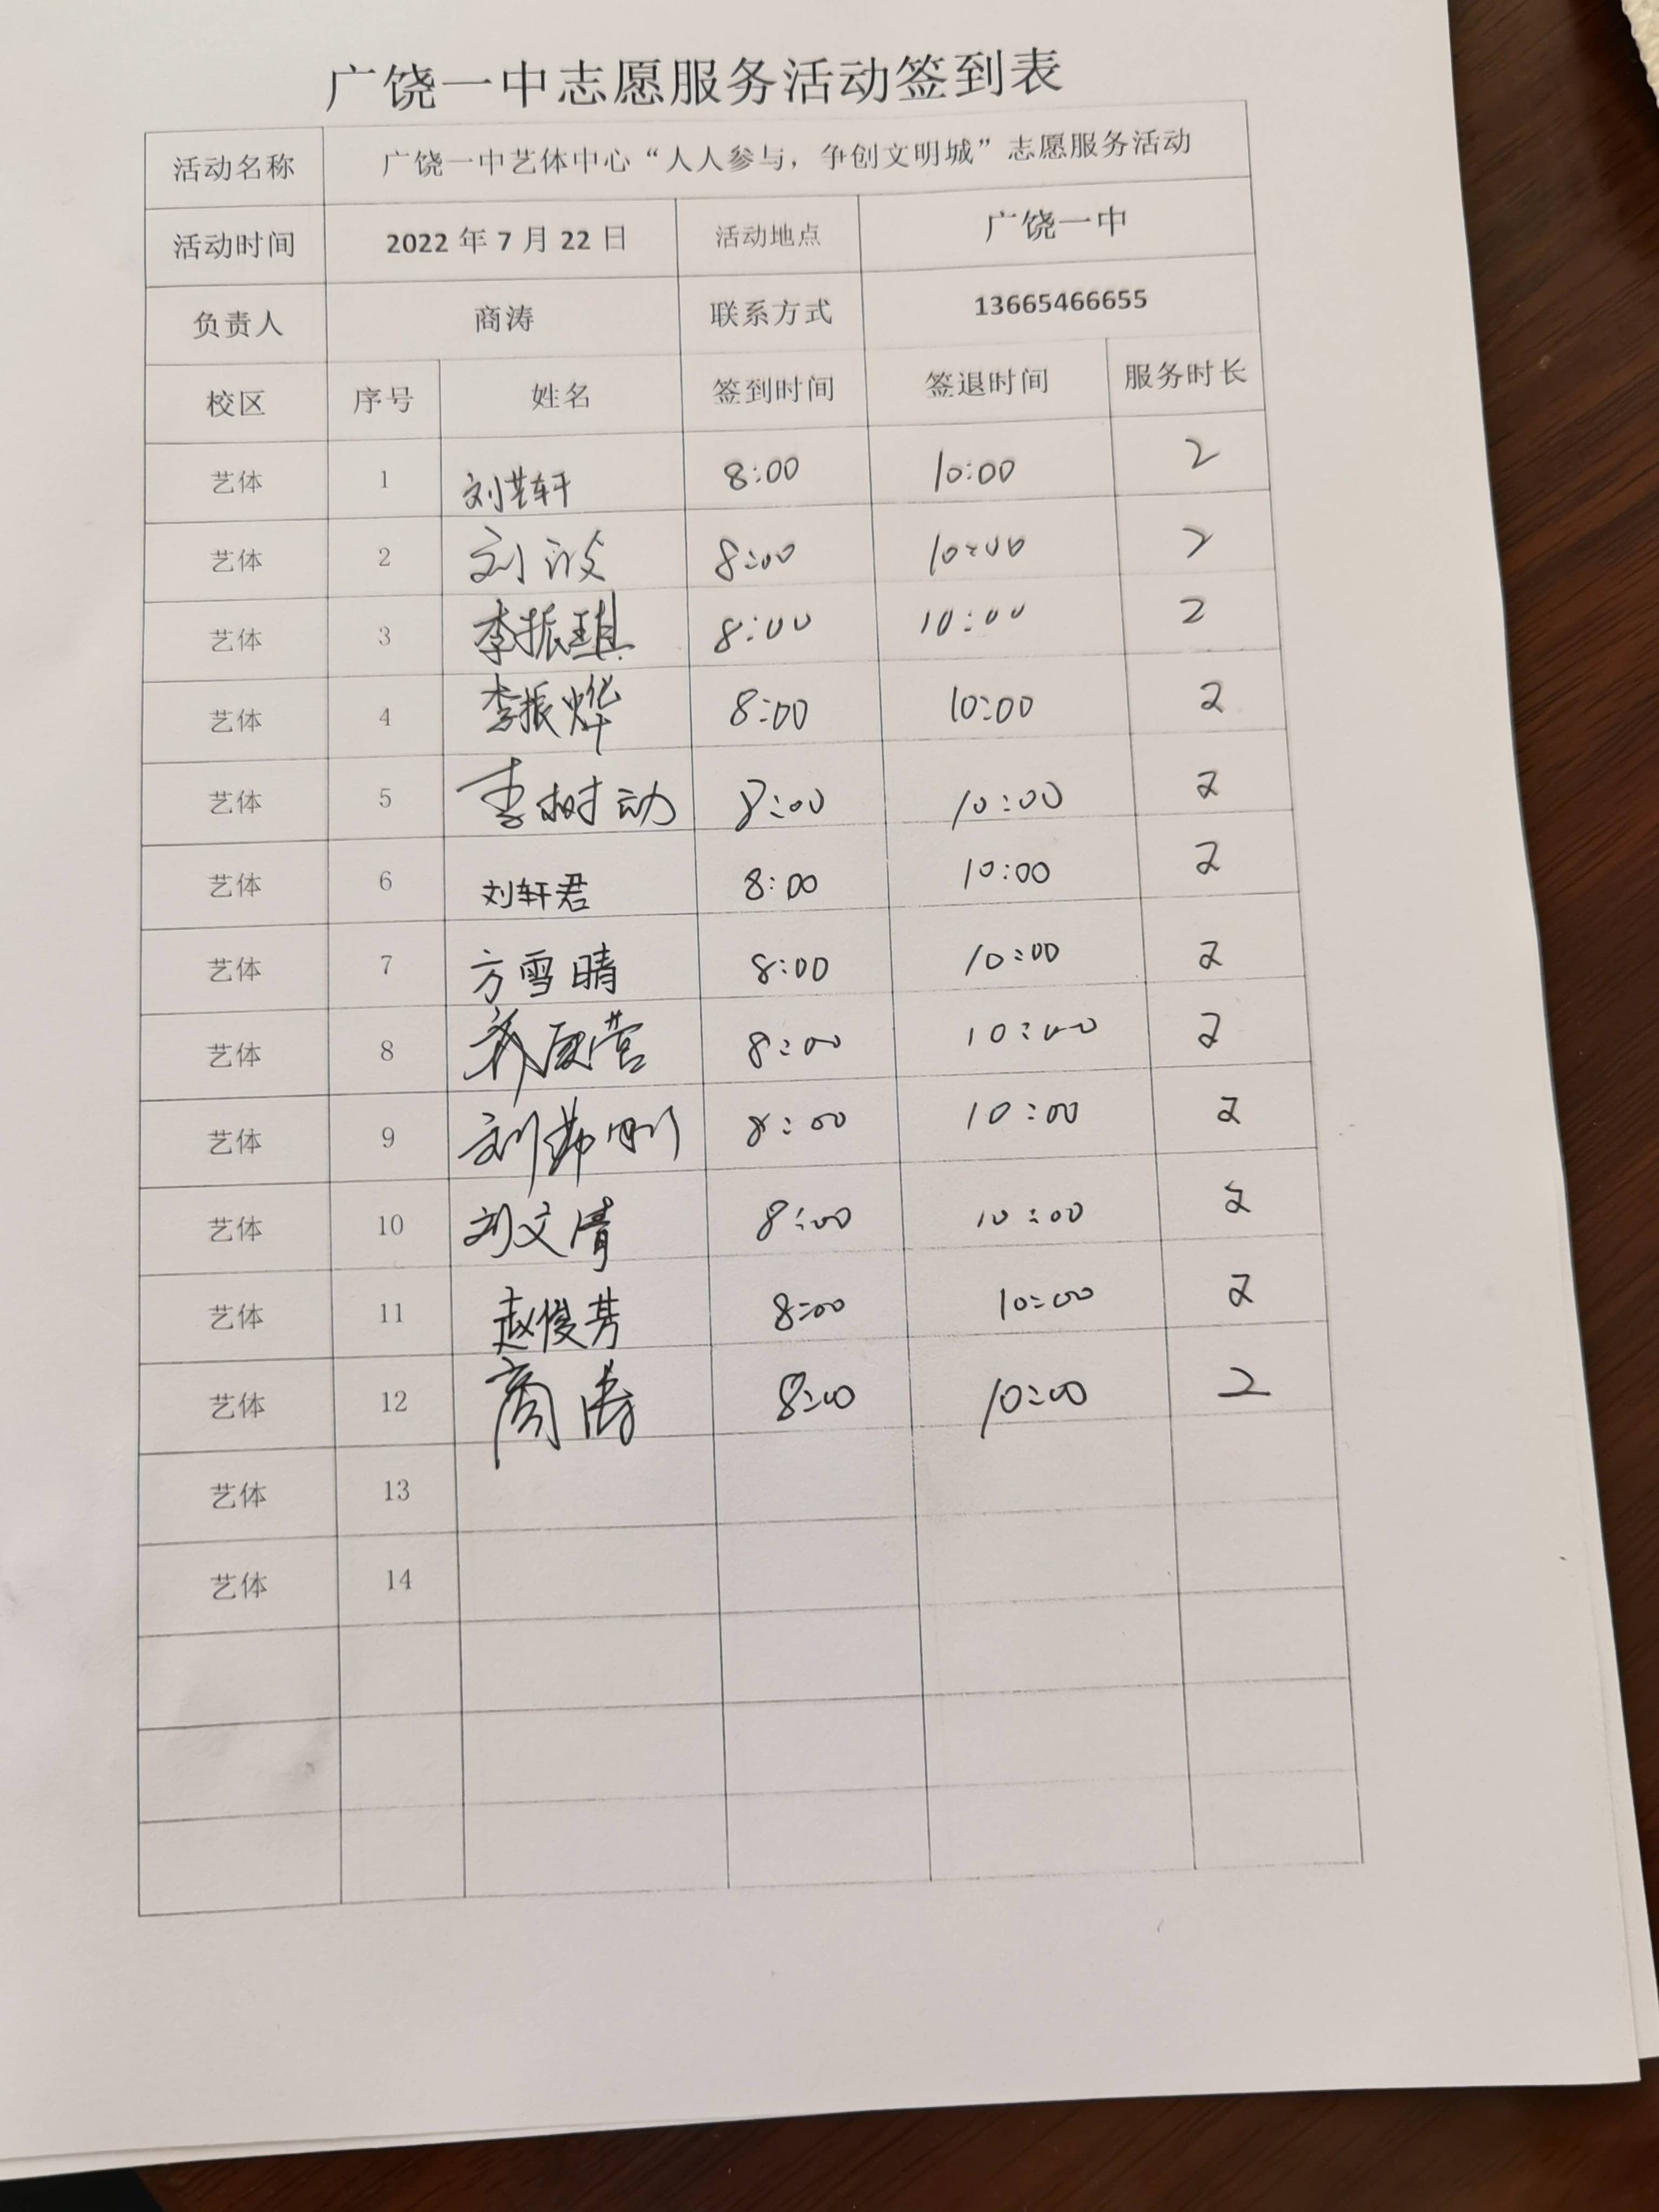 广饶一中志愿服务活动签到表
活动名称 广饶一中艺体中心“人人参与，争创文明城”志愿服务活动
活动时间 2022 年 7 月 22 日 活动地点 广饶一中
负责人 商涛 联系方式 13665466655
校区 序号 姓名 签到时间 签退时间 服务时长
艺体 1 刘芸轩 8:00 10:00 2
艺体 2 刘 8:00 10:00 2
艺体 3 李振琪 8:00 10:00 2
艺体 4 李振烨 8:00 10:00 2
艺体 5 李树动 8:00 10:00 2
艺体 6 刘轩君 8:00 10:00 2
艺体 7 方雪晴 8:00 10:00 2
艺体 8 8:00 10:00 2
艺体 9 刘 刚 8:00 10:00 2
艺体 10 刘文清 8:00 10:00 2
艺体 11 赵俊芳 8:00 10:00 2
艺体 12 商涛 8:00 10:00 2
艺体 13
艺体 14